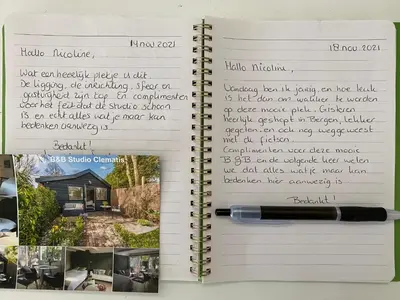 14 nov. 2021
Hallo Nicoline,
Wat een heerlijk plekje is dit.
De ligging, de inrichting, sfeer en
gastvrijheid zijn top. En complimenten
voor het feit dat de studio schoon
is en echt alles wat je maar kan
bedenken aanwezig is.
Bedankt!
B&B Studio Clematis
18 nov. 2021
Hallo Nicoline,
Vandaag ben ik jarig, en hoe leuk
is het dan om wakker te worden
op deze mooie plek. Gisteren
heerlijk geshopt in Bergen, lekker
gegeten en ook nog weggeweest
met de fietsen.
Complimenten voor deze mooie
B&B en de volgende keer weten
we dat alles wat je maar kan
bedenken hier aanwezig is.
Bedankt!